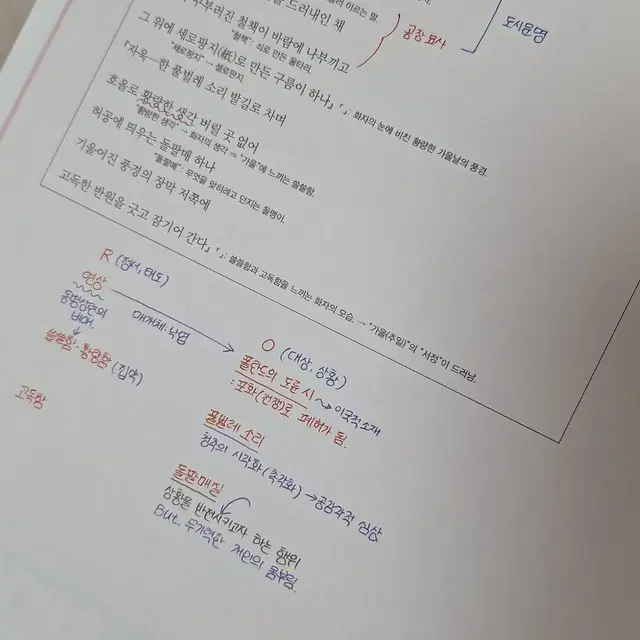 드러내인 채
구부러진 철책이 바람에 나부끼고
"철책": 쇠로 만든 울타리.
그 위에 세로팡지(紙)로 만든 구름이 하나
"세로팡지" → 셀로판지.
『자욱―한 풀벌레 소리 발길로 차며
호올로 황량한 생각 버릴 곳 없어
"황량한 생각" → 화자의 생각 ⇒ "가을"에 느끼는 쓸쓸함.
허공에 띄우는 돌팔매 하나
"돌팔매": 무엇을 맞히려고 던지는 돌멩이.
기울어진 풍경의 장막 저쪽에
고독한 반원을 긋고 잠기어 간다』
『 』: 쓸쓸함과 고독함을 느끼는 화자의 모습. → "가을(추일)"의 "서정"이 드러남.
」「 」: 화자의 눈에 비친 황량한 가을날의 풍경.
이르는 말.
공장 묘사
도시문명
R (정서, 태도)
연상
동병상련의 비애.
쓸쓸함·황량함 (집약)
고독감
매개체: 낙엽
O (대상, 상황)
폴란드의 도룬 시 → 이국적 소재
: 포화(전쟁)로 폐허가 됨.
풀벌레 소리
청각의 시각화 (촉각화) → 공감각적 심상
돌팔매질
상황을 반전시키고자 하는 행위
But, 무기력한 개인의 몸부림.